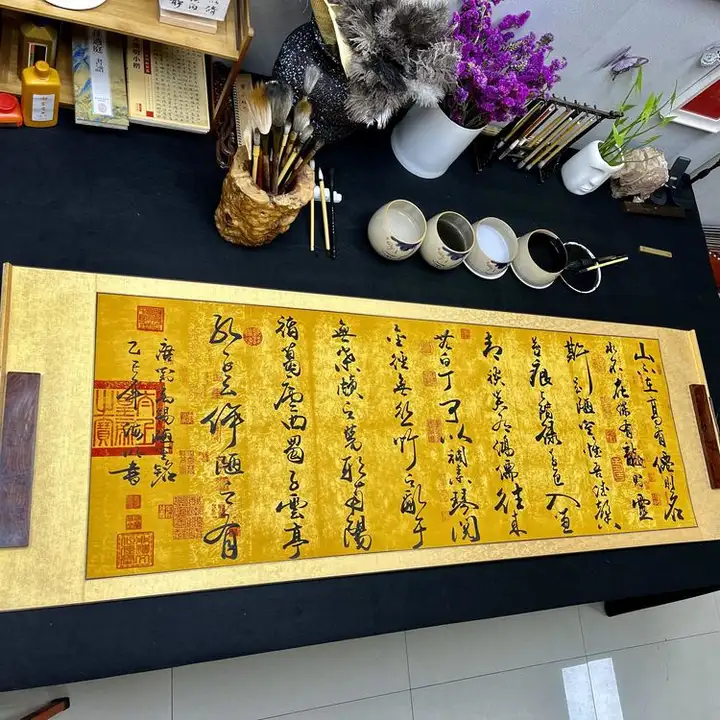 山不在高有僊則名
水不在深有龍則靈
斯是陋室惟吾德馨
苔痕上階綠草色入簾
青談笑有鴻儒往來
無白丁可以調素琴閱
金經無絲竹之亂耳
無案牘之勞形南陽
諸葛廬西蜀子雲亭
孔子云何陋之有
唐劉禹錫陋室銘
乙巳年書